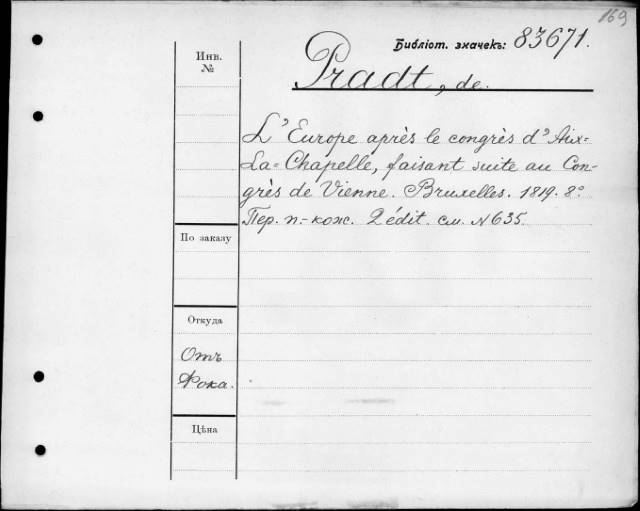 169
Библіот. значекъ: 83671.
Инв.
№
Pradt, de.
L'Europe après le congrès d'Aix=
La=Chapelle, faisant suite au Con-
grès de Vienne. Bruxelles. 1819. 8º
Пер. п.-кож. 2 édit. см. №635.
По заказу
Откуда
Отъ
Фока.
Цѣна